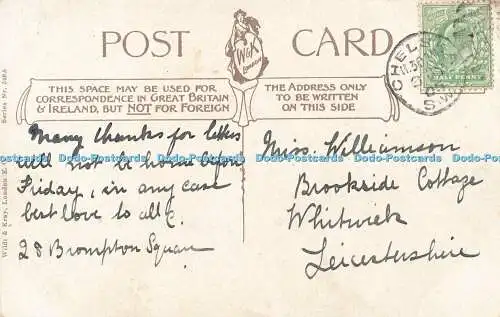 POST CARD
W&K
LONDON
THIS SPACE MAY BE USED FOR
CORRESPONDENCE IN GREAT BRITAIN
& IRELAND, BUT NOT FOR FOREIGN
THE ADDRESS ONLY
TO BE WRITTEN
ON THIS SIDE
HALF PENNY
CHELS
S.W.
Wildt & Kray, London E.
Series Nr.
Many thanks for
will not be home before
Friday, in any case
best love to all
28 Brompton Square
Miss. Williamson
Brookside Cottage
Whitwick
Leicestershire
Dodo-Postcards Dodo-Postcards Dodo-Postcards Dodo-Postcards Dodo-Postcards